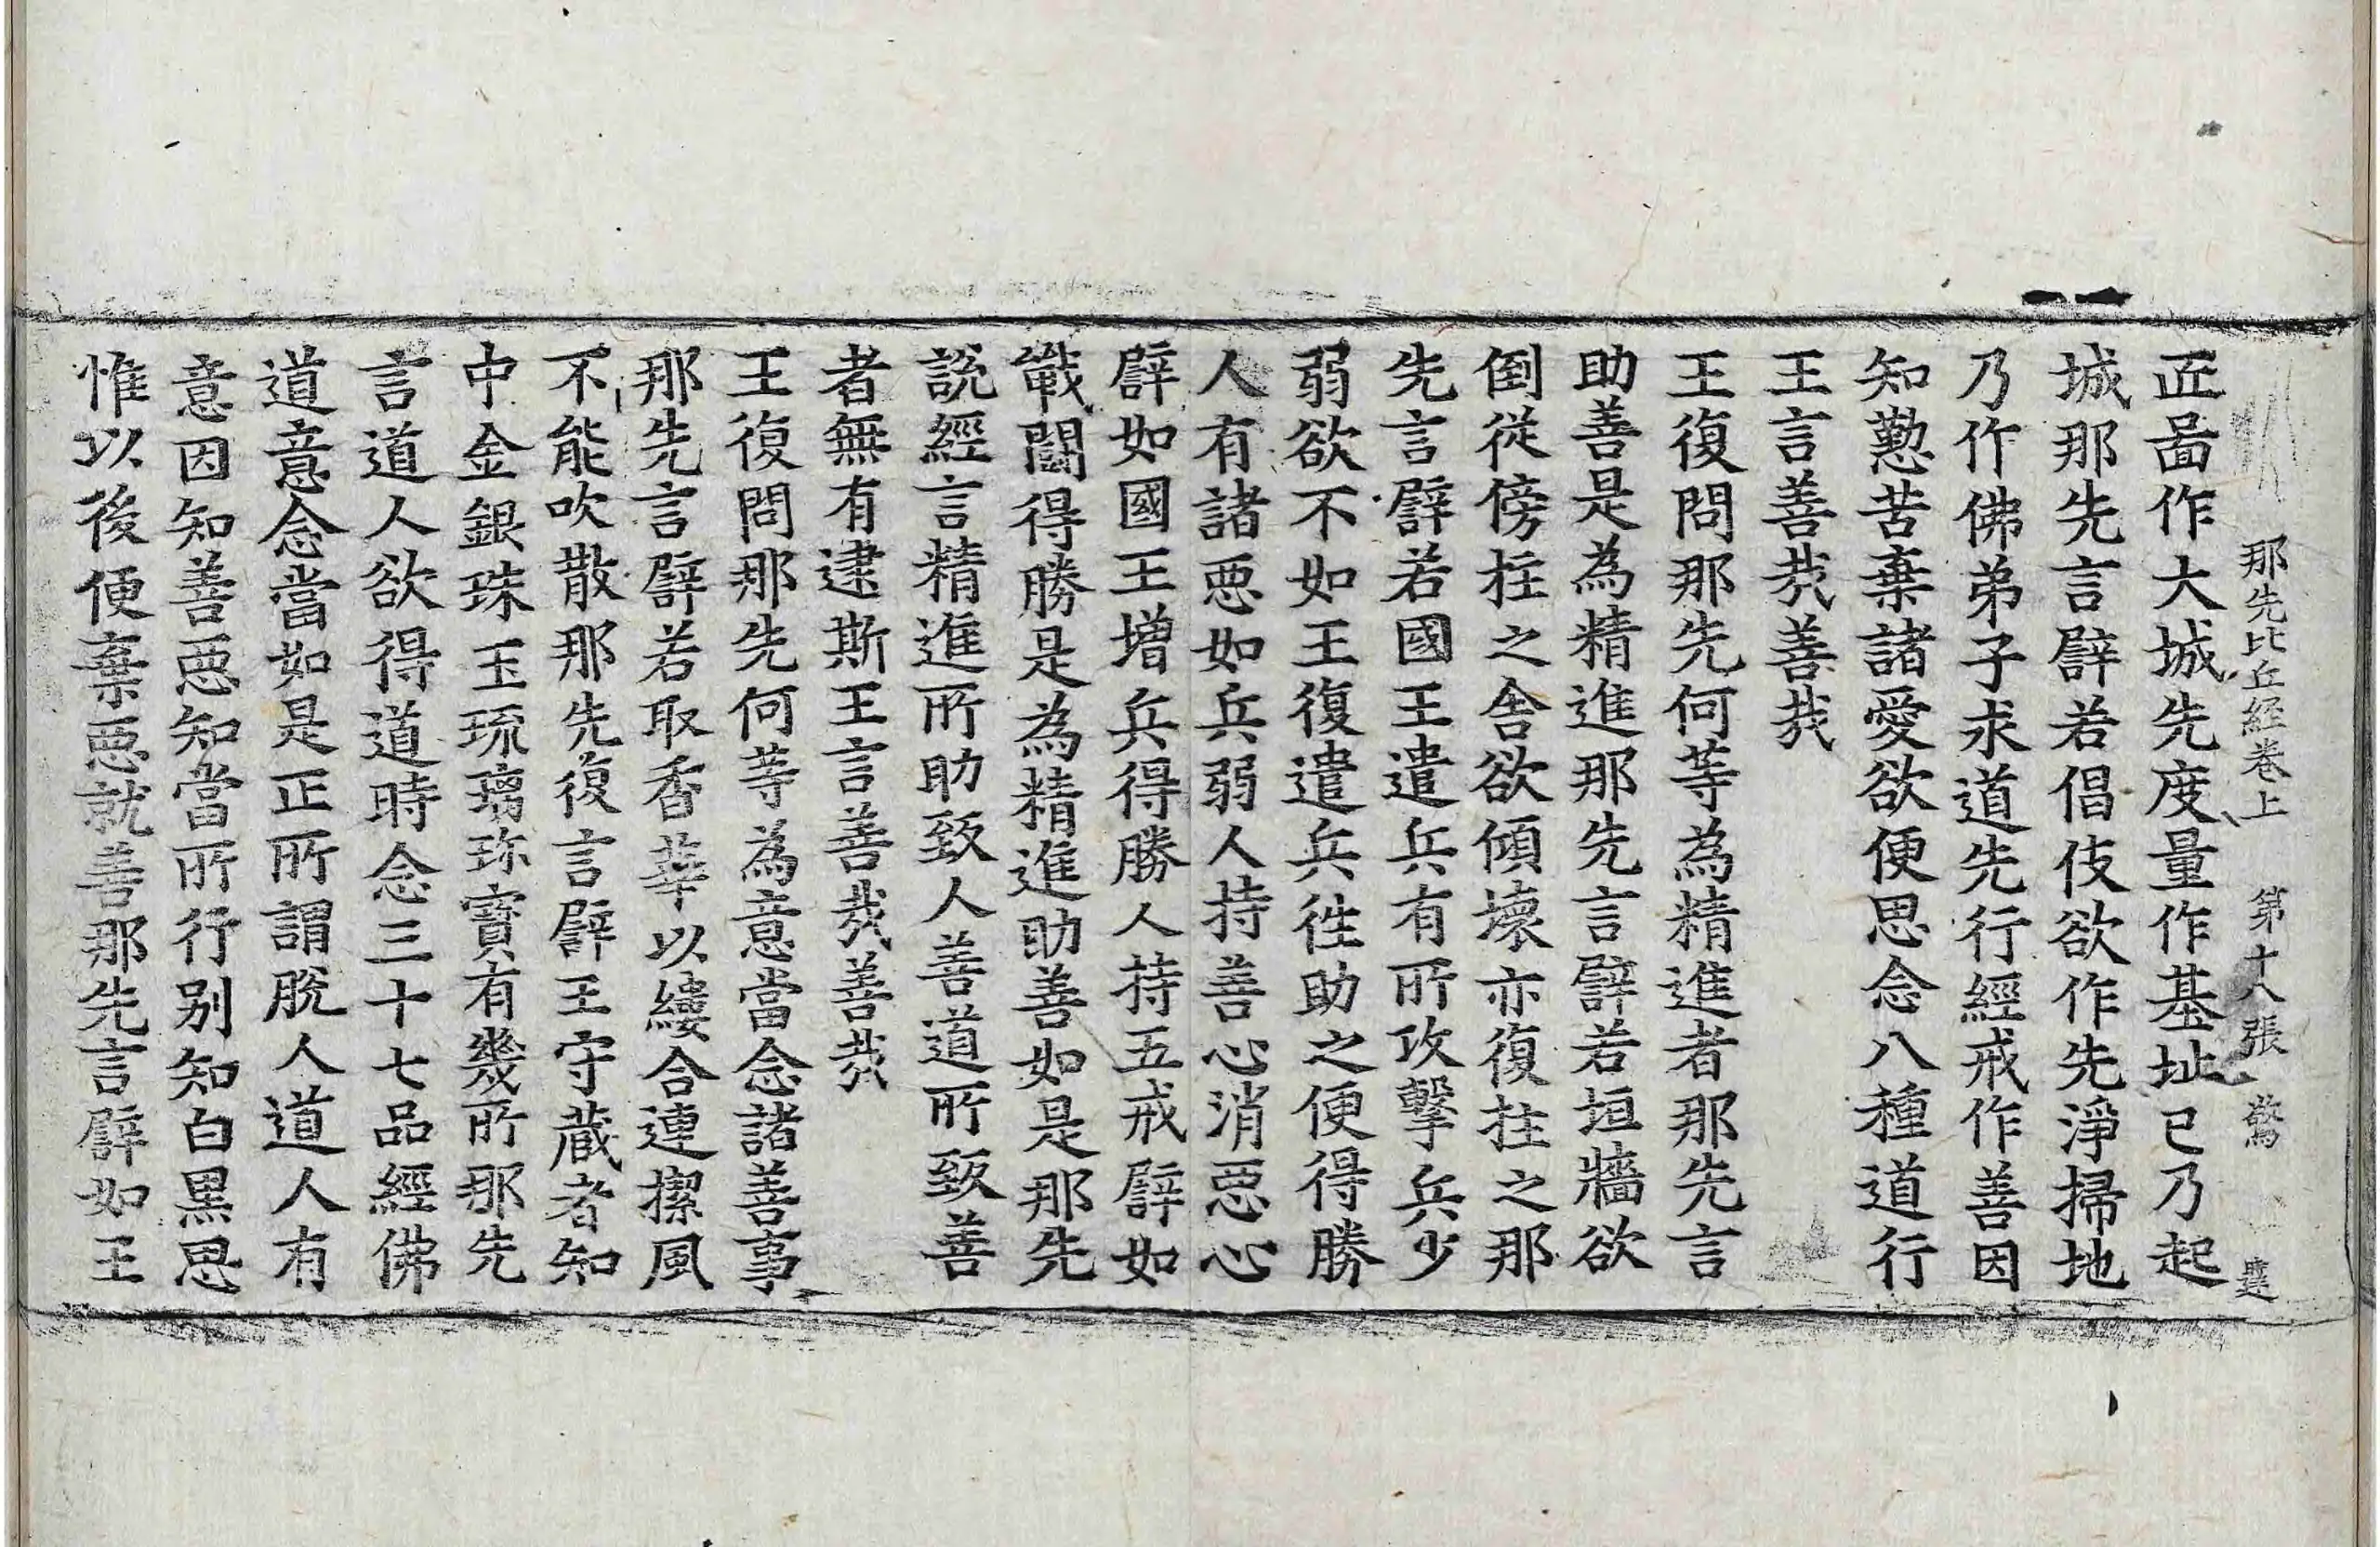 那先比丘経卷上　第十八張　驚
㢠啚作大城先度量作基址已乃起
城那先言譬若倡伎欲作先淨掃地
乃作佛弟子求道先行經戒作善因
知懃苦棄諸愛欲便思念八種道行
王言善㢤善㢤
王復問那先何等為精進者那先言
助善是為精進那先言譬若垣牆欲
倒從傍拄之舍欲傾壞亦復拄之那
先言譬若國王遣兵有所攻擊兵少
弱欲不如王復遣兵徃助之便得勝
人有諸惡如兵弱人持善心消惡心
譬如國王增兵得勝人持五戒譬如
戰鬪得勝是為精進助善如是那先
說經言精進所助致人善道所致善
者無有逮斯王言善㢤善㢤
王復問那先何等為意當念諸善事
那先言譬若取香華以縷合連摞風
不能吹散那先復言譬王守藏者知
中金銀珠玉琉璃珎寶有幾所那先
言道人欲得道時念三十七品經佛
道意念當如是正所謂脫人道人有
意因知善惡知當所行別知白黒思
惟以後便棄惡就善那先言譬如王